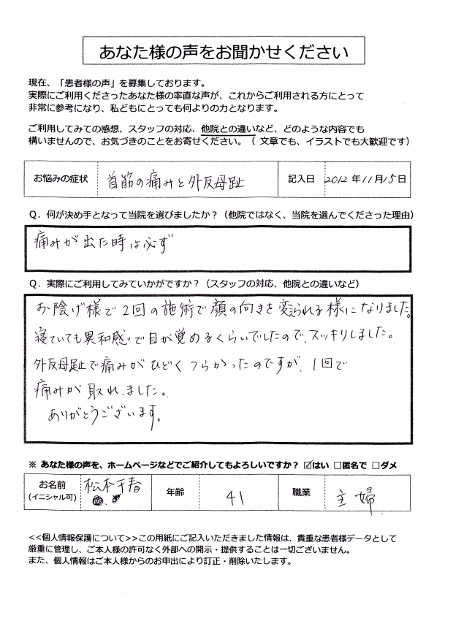 あなた様の声をお聞かせください
現在、「患者様の声」を募集しております。
実際にご利用くださったあなた様の率直な声が、これからご利用される方にとって
非常に参考になり、私どもにとっても何よりの力となります。
ご利用してみての感想、スタッフの対応、他院との違いなど、どのような内容でも
構いませんので、お気づきのことをお寄せください。（ 文章でも、イラストでも大歓迎です）
お悩みの症状 首筋の痛みと外反母趾 記入日 2012 年 11 月 15 日
Q．何が決め手となって当院を選びましたか？（他院ではなく、当院を選んでくださった理由）
痛みが出た時は必ず
Q．実際にご利用してみていかがですか？（スタッフの対応、他院との違いなど）
お陰げ様で2回の施術で顔の向きを変えられる様になりました。
寝ていても異和感で目が覚めるくらいでしたので、スッキリしました。
外反母趾で痛みがひどくつらかったのですが、1回で
痛みが取れました。
ありがとうございます。
※ あなた様の声を、ホームページなどでご紹介してもよろしいですか？ ☑はい □匿名で □ダメ
お名前 松本千春 年齢 41 職業 主婦
(イニシャル可)
<<個人情報保護について>>この用紙にご記入いただきました情報は、貴重な患者様データとして
厳重に管理し、ご本人様の許可なく外部への開示・提供することは一切ございません。
また、個人情報はご本人様からのお申出により訂正・削除いたします。